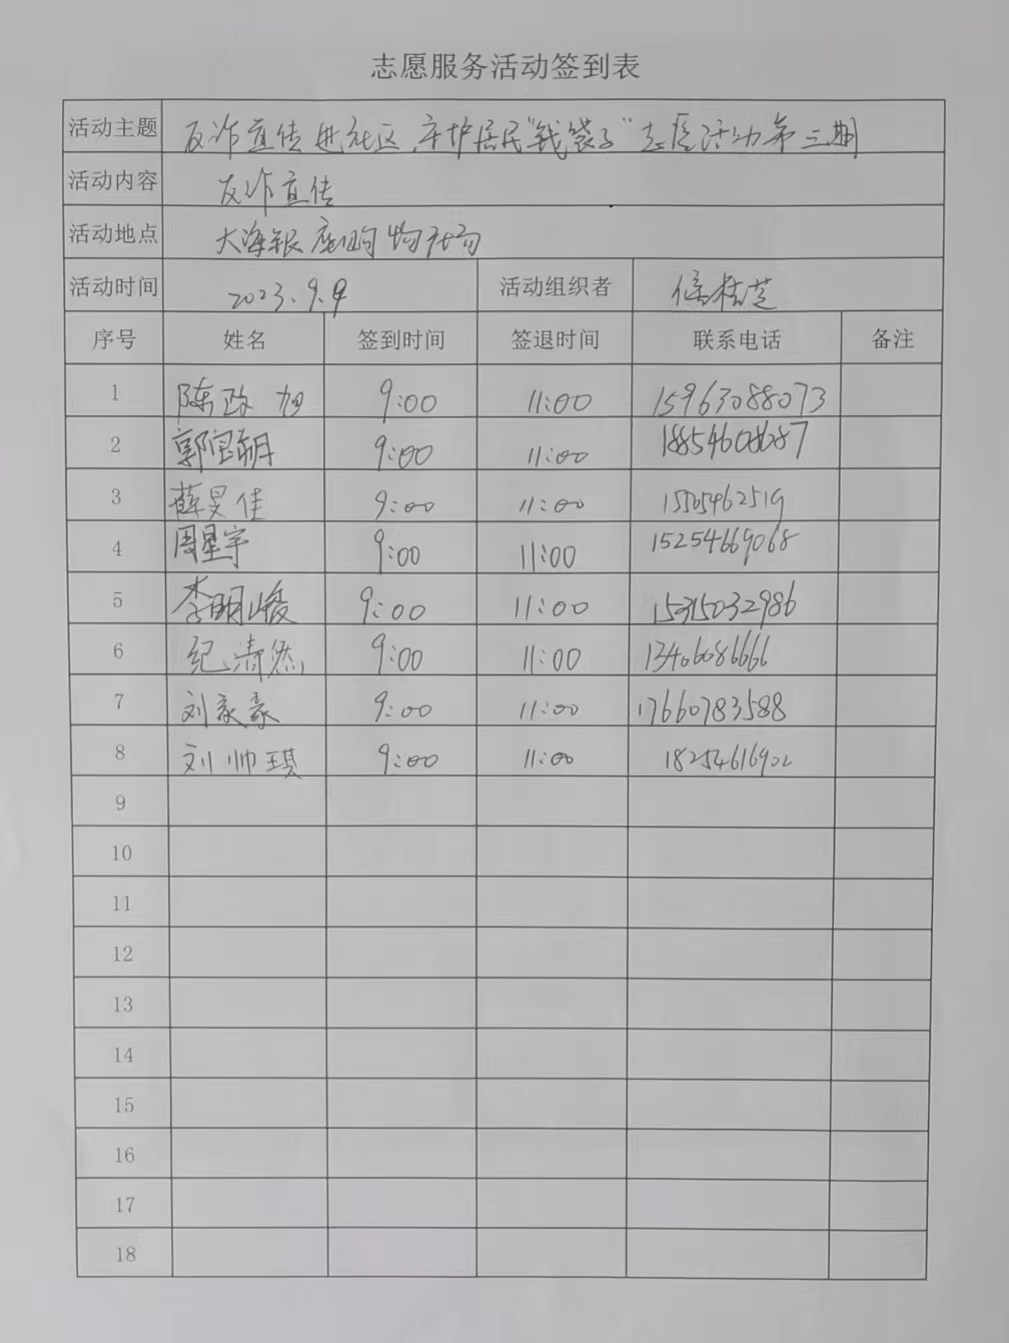 志愿服务活动签到表
活动主题 反诈宣传进社区,守护居民"钱袋子"志愿活动第三期
活动内容 反诈宣传
活动地点 大海银座购物社局
活动时间 2023.9.9 活动组织者 侯桂芝
序号 姓名 签到时间 签退时间 联系电话 备注
1 陈政旭 9:00 11:00 15963088073
2 郭宝朝 9:00 11:00 18854608687
3 薛旻佳 9:00 11:00 15505462519
4 周星宇 9:00 11:00 15254669068
5 李明峻 9:00 11:00 15315032986
6 纪清然 9:00 11:00 13406086666
7 刘家豪 9:00 11:00 17660783588
8 刘帅琪 9:00 11:00 18254616902
9
10
11
12
13
14
15
16
17
18